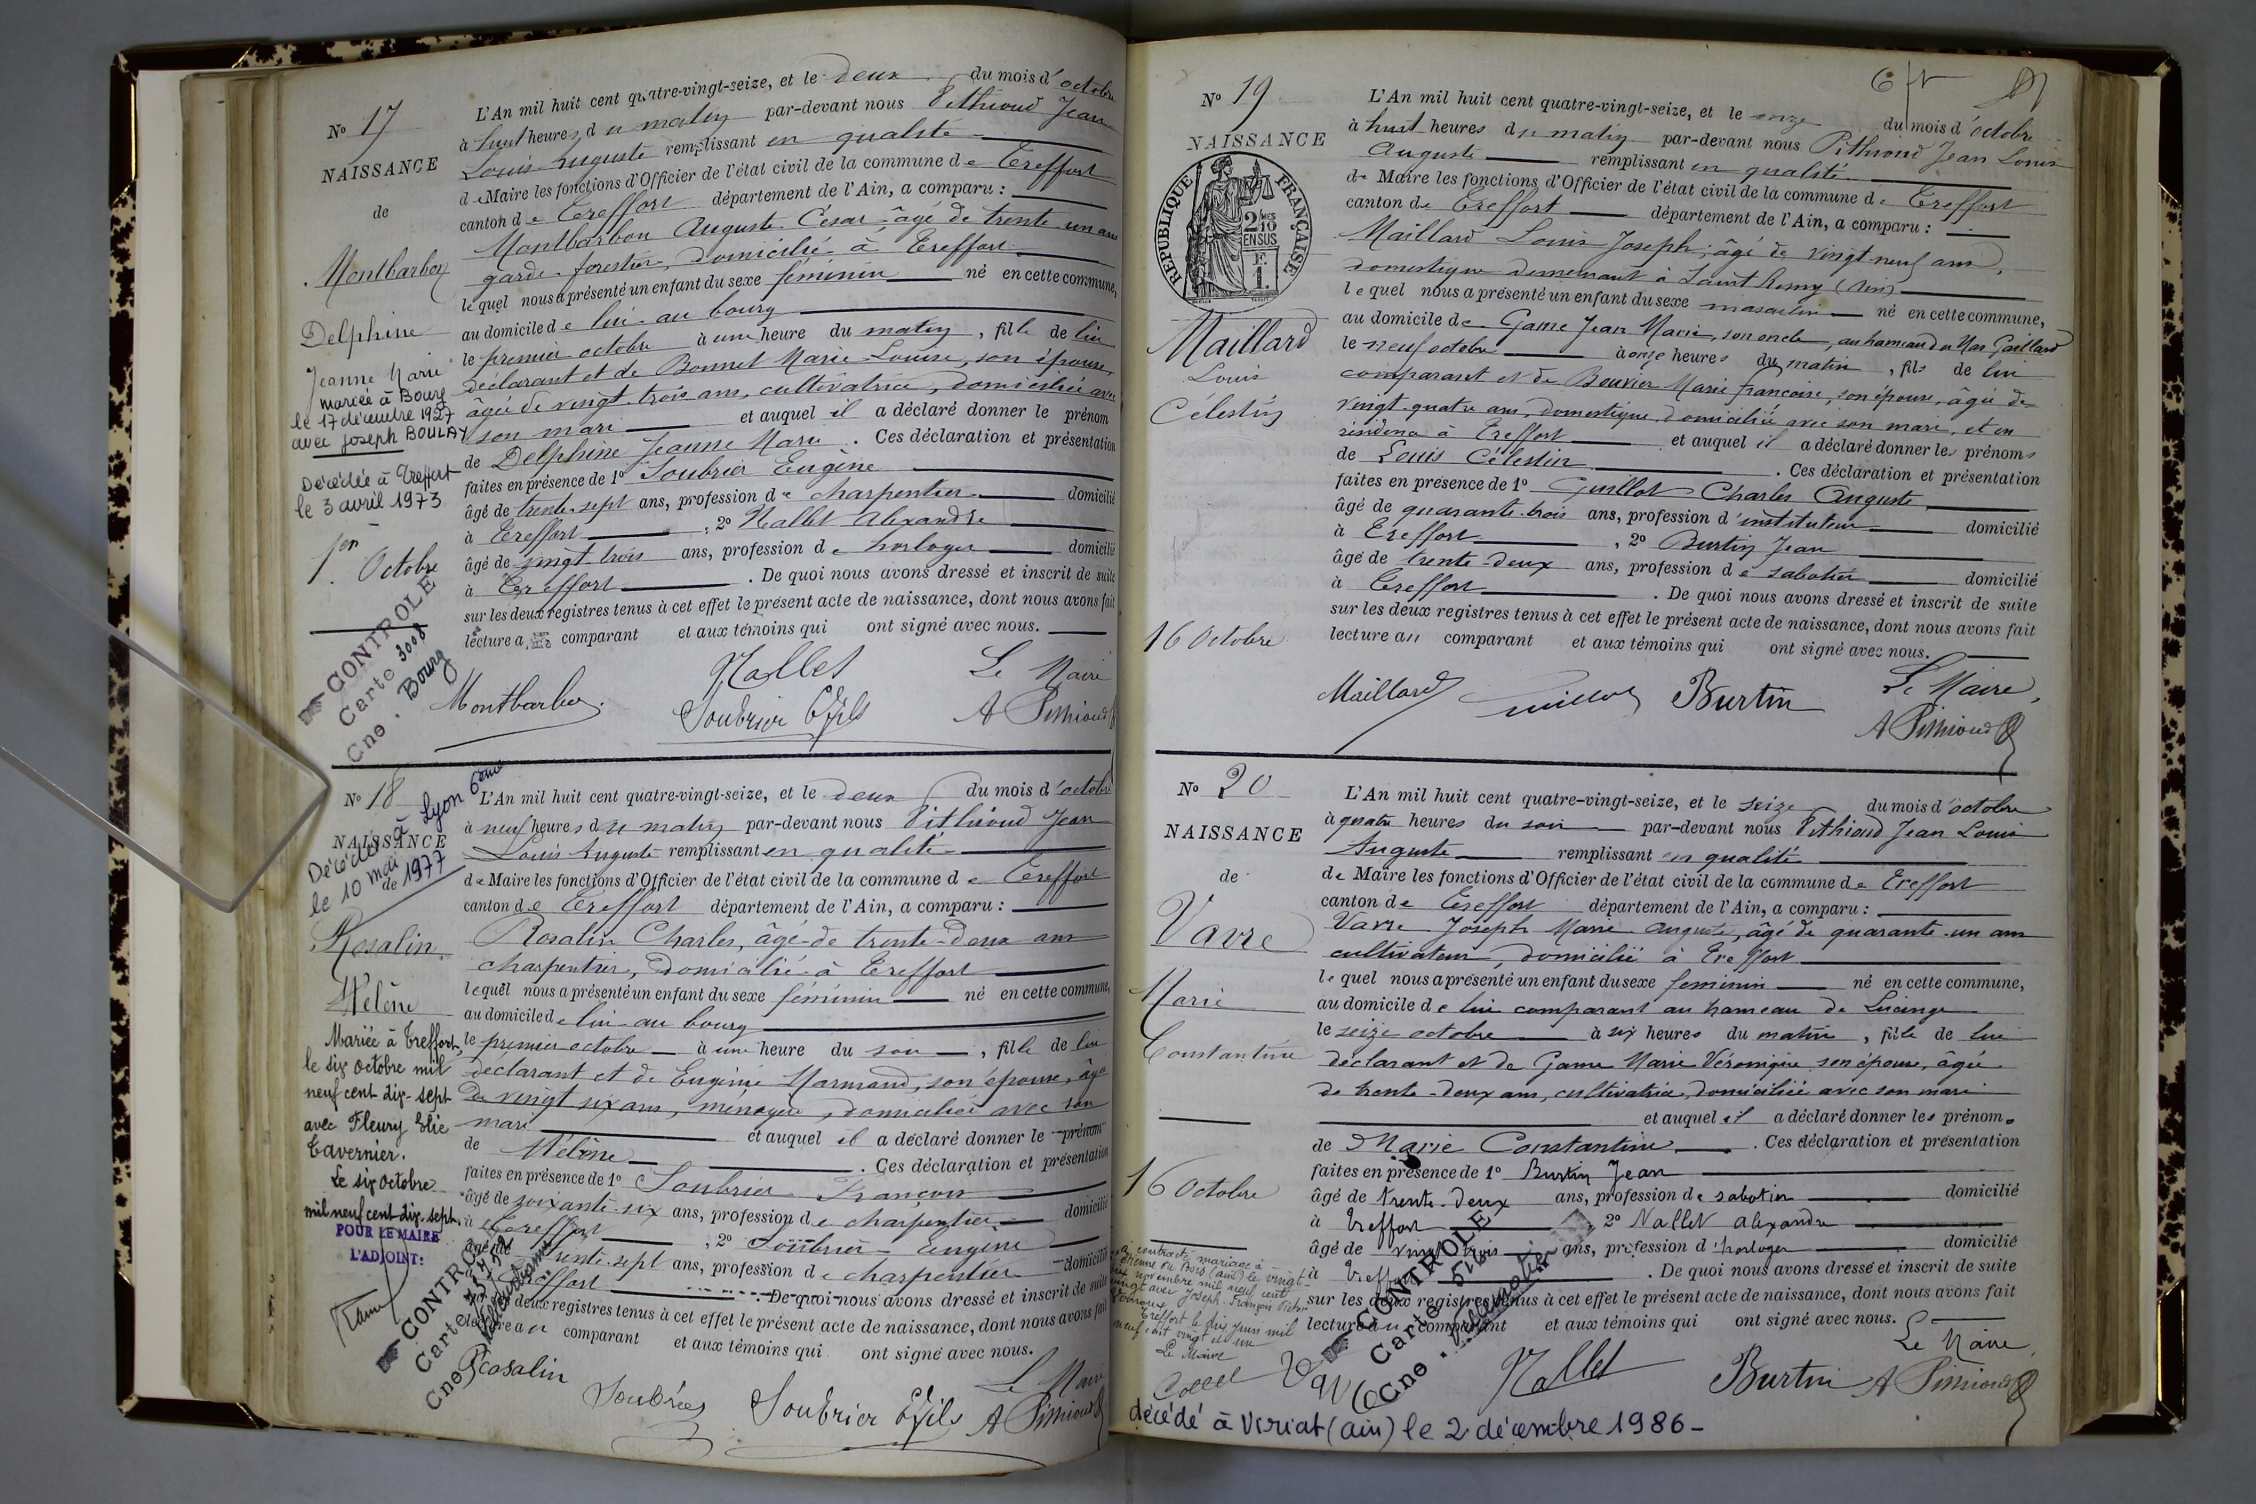 N° 17
NAISSANCE
de
Montbarbon
Delphine
Jeanne Marie
mariée à Bourg
le 17 décembre 1927
avec Joseph BOULAY
Décédée à Treffort
le 3 avril 1973
1er Octobre
CONTROLE
Carte 3008
Cne. Bourg
L'An mil huit cent quatre-vingt-seize, et le deux du mois d'octobre
à huit heures du matin par-devant nous Pithioud Jean
Louis Auguste remplissant en qualité
de Maire les fonctions d'Officier de l'état civil de la commune de Treffort
canton de Treffort département de l'Ain, a comparu :
Montbarbon Auguste César, âgé de trente-un ans
garde-forestier, domicilié à Treffort
lequel nous a présenté un enfant du sexe féminin né en cette commune,
au domicile de lui au bourg
le premier octobre à une heure du matin, fille de lui
déclarant et de Bonnet Marie-Louise, son épouse,
âgée de vingt-trois ans, cultivatrice, domiciliée avec
son mari et auquel il a déclaré donner le prénom
de Delphine Jeanne Marie. Ces déclaration et présentation
faites en présence de 1° Soubrier Eugène
âgé de trente-sept ans, profession de charpentier domicilié
à Treffort, 2° Nallet Alexandre
âgé de vingt-trois ans, profession de horloger domicilié
à Treffort. De quoi nous avons dressé et inscrit de suite
sur les deux registres tenus à cet effet le présent acte de naissance, dont nous avons fait
lecture au comparant et aux témoins qui ont signé avec nous.
Montbarbon Nallet Le Maire
Soubrier E fils A Pithioud
N° 18
NAISSANCE
de
Décédée à Lyon 6ème
le 10 mai 1977
Rosalin
Hélène
Mariée à Treffort,
le six octobre mil
neuf cent dix-sept
avec Fleury Elie
Tavernier.
Le six octobre
mil neuf cent dix-sept.
POUR LE MAIRE
L'ADJOINT:
CONTROLE
Carte
Cne. Villeurbanne
L'An mil huit cent quatre-vingt-seize, et le deux du mois d'octobre
à neuf heures du matin par-devant nous Pithioud Jean
Louis Auguste remplissant en qualité
de Maire les fonctions d'Officier de l'état civil de la commune de Treffort
canton de Treffort département de l'Ain, a comparu :
Rosalin Charles, âgé de trente-deux ans
charpentier, domicilié à Treffort
lequel nous a présenté un enfant du sexe féminin né en cette commune,
au domicile de lui au bourg
le premier octobre à une heure du soir, fille de lui
déclarant et de Eugénie Marmand, son épouse, âgée
de vingt six ans, ménagère, domiciliée avec son
mari et auquel il a déclaré donner le prénom
de Hélène. Ces déclaration et présentation
faites en présence de 1° Soubrier François
âgé de soixante-six ans, profession de charpentier domicilié
à Treffort, 2° Soubrier Eugène
âgé de trente-sept ans, profession de charpentier domicilié
à Treffort. De quoi nous avons dressé et inscrit de suite
sur les deux registres tenus à cet effet le présent acte de naissance, dont nous avons fait
lecture au comparant et aux témoins qui ont signé avec nous.
Rosalin Soubrier Soubrier E fils Le Maire
A Pithioud
N° 19
NAISSANCE
REPUBLIQUE FRANÇAISE
2/10 EN SUS
F. 1.
Maillard
Louis
Célestin
16 Octobre
L'An mil huit cent quatre-vingt-seize, et le seize du mois d'octobre
à huit heures du matin par-devant nous Pithioud Jean Louis
Auguste remplissant en qualité
de Maire les fonctions d'Officier de l'état civil de la commune de Treffort
canton de Treffort département de l'Ain, a comparu :
Maillard Louis Joseph, âgé de vingt-neuf ans,
domestique demeurant à Saint Remy (Ain)
lequel nous a présenté un enfant du sexe masculin né en cette commune,
au domicile de Game Jean Marie, son oncle, au hameau du Mas Gaillard
le neuf octobre à onze heures du matin, fils de lui
comparant et de Bouvier Marie Françoise, son épouse, âgée de
vingt-quatre ans, domestique domiciliée avec son mari, et en
résidence à Treffort et auquel il a déclaré donner les prénoms
de Louis Célestin. Ces déclaration et présentation
faites en présence de 1° Guillot Charles Auguste
âgé de quarante-trois ans, profession d'instituteur domicilié
à Treffort, 2° Burtin Jean
âgé de trente-deux ans, profession de sabotier domicilié
à Treffort. De quoi nous avons dressé et inscrit de suite
sur les deux registres tenus à cet effet le présent acte de naissance, dont nous avons fait
lecture au comparant et aux témoins qui ont signé avec nous.
Maillard Guillot Burtin Le Maire,
A Pithioud
N° 20
NAISSANCE
de
Vavre
Marie
Constantine
16 Octobre
a contracté mariage à
Etienne du Bois (ain) le vingt-
novembre mil neuf cent
vingt avec Joseph François
Treffort le dix juin mil
neuf cent vingt et un
Le Maire
CONTROLE
Carte 516
Cne.
L'An mil huit cent quatre-vingt-seize, et le seize du mois d'octobre
à quatre heures du soir par-devant nous Pithioud Jean Louis
Auguste remplissant en qualité
de Maire les fonctions d'Officier de l'état civil de la commune de Treffort
canton de Treffort département de l'Ain, a comparu :
Vavre Joseph Marie Auguste, âgé de quarante-un ans
cultivateur, domicilié à Treffort
lequel nous a présenté un enfant du sexe féminin né en cette commune,
au domicile de lui comparant au hameau de Lucinge
le seize octobre à six heures du matin, fille de lui
déclarant et de Game Marie Véronique son épouse, âgée
de trente-deux ans, cultivatrice, domiciliée avec son mari
et auquel il a déclaré donner les prénoms
de Marie Constantine. Ces déclaration et présentation
faites en présence de 1° Burtin Jean
âgé de trente-deux ans, profession de sabotier domicilié
à Treffort, 2° Nallet Alexandre
âgé de vingt trois ans, profession d'horloger domicilié
à Treffort. De quoi nous avons dressé et inscrit de suite
sur les deux registres tenus à cet effet le présent acte de naissance, dont nous avons fait
lecture au comparant et aux témoins qui ont signé avec nous.
Nallet Burtin Le Maire,
A Pithioud
décédé à Viriat (ain) le 2 décembre 1986-